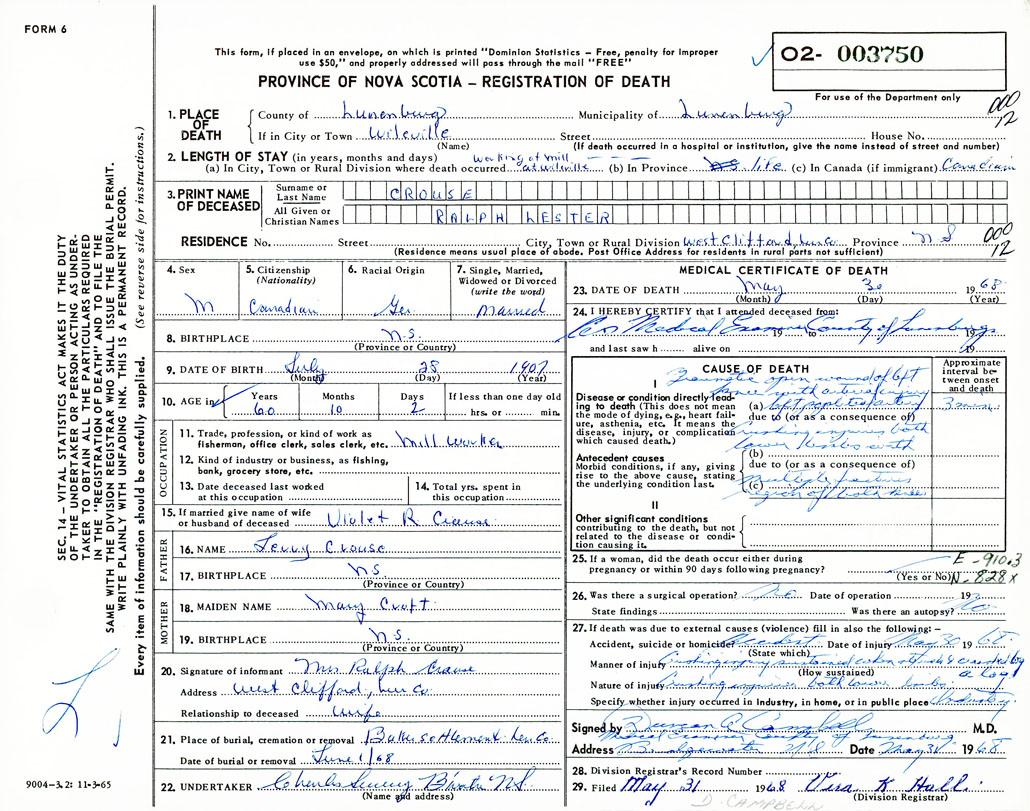 FORM 6
This form, if placed in an envelope, on which is printed "Dominion Statistics – Free, penalty for improper
use $50," and properly addressed will pass through the mail "FREE"
PROVINCE OF NOVA SCOTIA – REGISTRATION OF DEATH
02- 003750
For use of the Department only
000
12
1. PLACE OF DEATH
County of Lunenburg Municipality of Lunenburg
If in City or Town Wileville Street House No.
(Name) (If death occurred in a hospital or institution, give the name instead of street and number)
2. LENGTH OF STAY (in years, months and days) working at mill
(a) In City, Town or Rural Division where death occurred at wileville (b) In Province life (c) In Canada (if immigrant) Canadian
3. PRINT NAME OF DECEASED
Surname or Last Name CROUSE
All Given or Christian Names RALPH LESTER
RESIDENCE No. Street City, Town or Rural Division West Clifford, Lun Co. Province N S
000
12
(Residence means usual place of abode. Post Office Address for residents in rural parts not sufficient)
4. Sex
M
5. Citizenship (Nationality)
Canadian
6. Racial Origin
Ger
7. Single, Married, Widowed or Divorced (write the word)
Married
8. BIRTHPLACE N.S.
(Province or Country)
9. DATE OF BIRTH July 28 1907
(Month) (Day) (Year)
10. AGE in Years Months Days If less than one day old
60 10 2 hrs. or min.
OCCUPATION
11. Trade, profession, or kind of work as
fisherman, office clerk, sales clerk, etc. Mill worker
12. Kind of industry or business, as fishing,
bank, grocery store, etc.
13. Date deceased last worked
at this occupation
14. Total yrs. spent in
this occupation
15. If married give name of wife
or husband of deceased Violet R Crouse
FATHER
16. NAME Crouse
17. BIRTHPLACE N.S.
(Province or Country)
MOTHER
18. MAIDEN NAME Mary Croft
19. BIRTHPLACE N.S.
(Province or Country)
20. Signature of informant Mrs Ralph Crouse
Address West Clifford, Lun Co
Relationship to deceased Wife
21. Place of burial, cremation or removal Baker settlement Lun Co.
Date of burial or removal June 1/68
22. UNDERTAKER Charles N.S.
(Name and address)
MEDICAL CERTIFICATE OF DEATH
23. DATE OF DEATH May 30 1968
(Month) (Day) (Year)
24. I HEREBY CERTIFY that I attended deceased from:
As Medical Examiner 19 to County of Lunenburg 19
and last saw h alive on 19
CAUSE OF DEATH
Approximate interval between onset and death
I
Traumatic open wound of left
Disease or condition directly leading to death (This does not mean the mode of dying, e.g., heart failure, asthenia, etc. It means the disease, injury, or complication which caused death.)
knee with
(a) left popliteal artery 3 min.
due to (or as a consequence of)
crushing injuries both
lower limbs with
Antecedent causes
Morbid conditions, if any, giving rise to the above cause, stating the underlying condition last.
(b)
due to (or as a consequence of)
multiple fractures
(c)
region of both knees
II
Other significant conditions
contributing to the death, but not related to the disease or condition causing it.
25. If a woman, did the death occur either during
pregnancy or within 90 days following pregnancy?
(Yes or No)
E-910.3
N-828X
26. Was there a surgical operation? No Date of operation 19
State findings Was there an autopsy? No
27. If death was due to external causes (violence) fill in also the following: –
Accident, suicide or homicide? Accident Date of injury May 30 1968
(State which)
Manner of injury crushing injury sustained when crushed by
a log
(How sustained)
Nature of injury crushing injuries both lower limbs
Specify whether injury occurred in industry, in home, or in public place Industry
Signed by Duncan C. Campbell M.D.
Medical Examiner County of Lunenburg
Address Bridgewater N S Date May 31 1968
28. Division Registrar's Record Number
29. Filed May 31 1968 Vira K Hall
(Division Registrar)
D. CAMPBELL
SEC. 14 – VITAL STATISTICS ACT MAKES IT THE DUTY
OF THE UNDERTAKER OR PERSON ACTING AS UNDER-
TAKER TO OBTAIN ALL THE PARTICULARS REQUIRED
IN THE "REGISTRATION OF DEATH" AND TO FILE THE
SAME WITH THE DIVISION REGISTRAR WHO SHALL ISSUE THE BURIAL PERMIT.
WRITE PLAINLY WITH UNFADING INK. THIS IS A PERMANENT RECORD.
Every item of information should be carefully supplied. (See reverse side for instructions.)
9004-3.2: 11-3-65